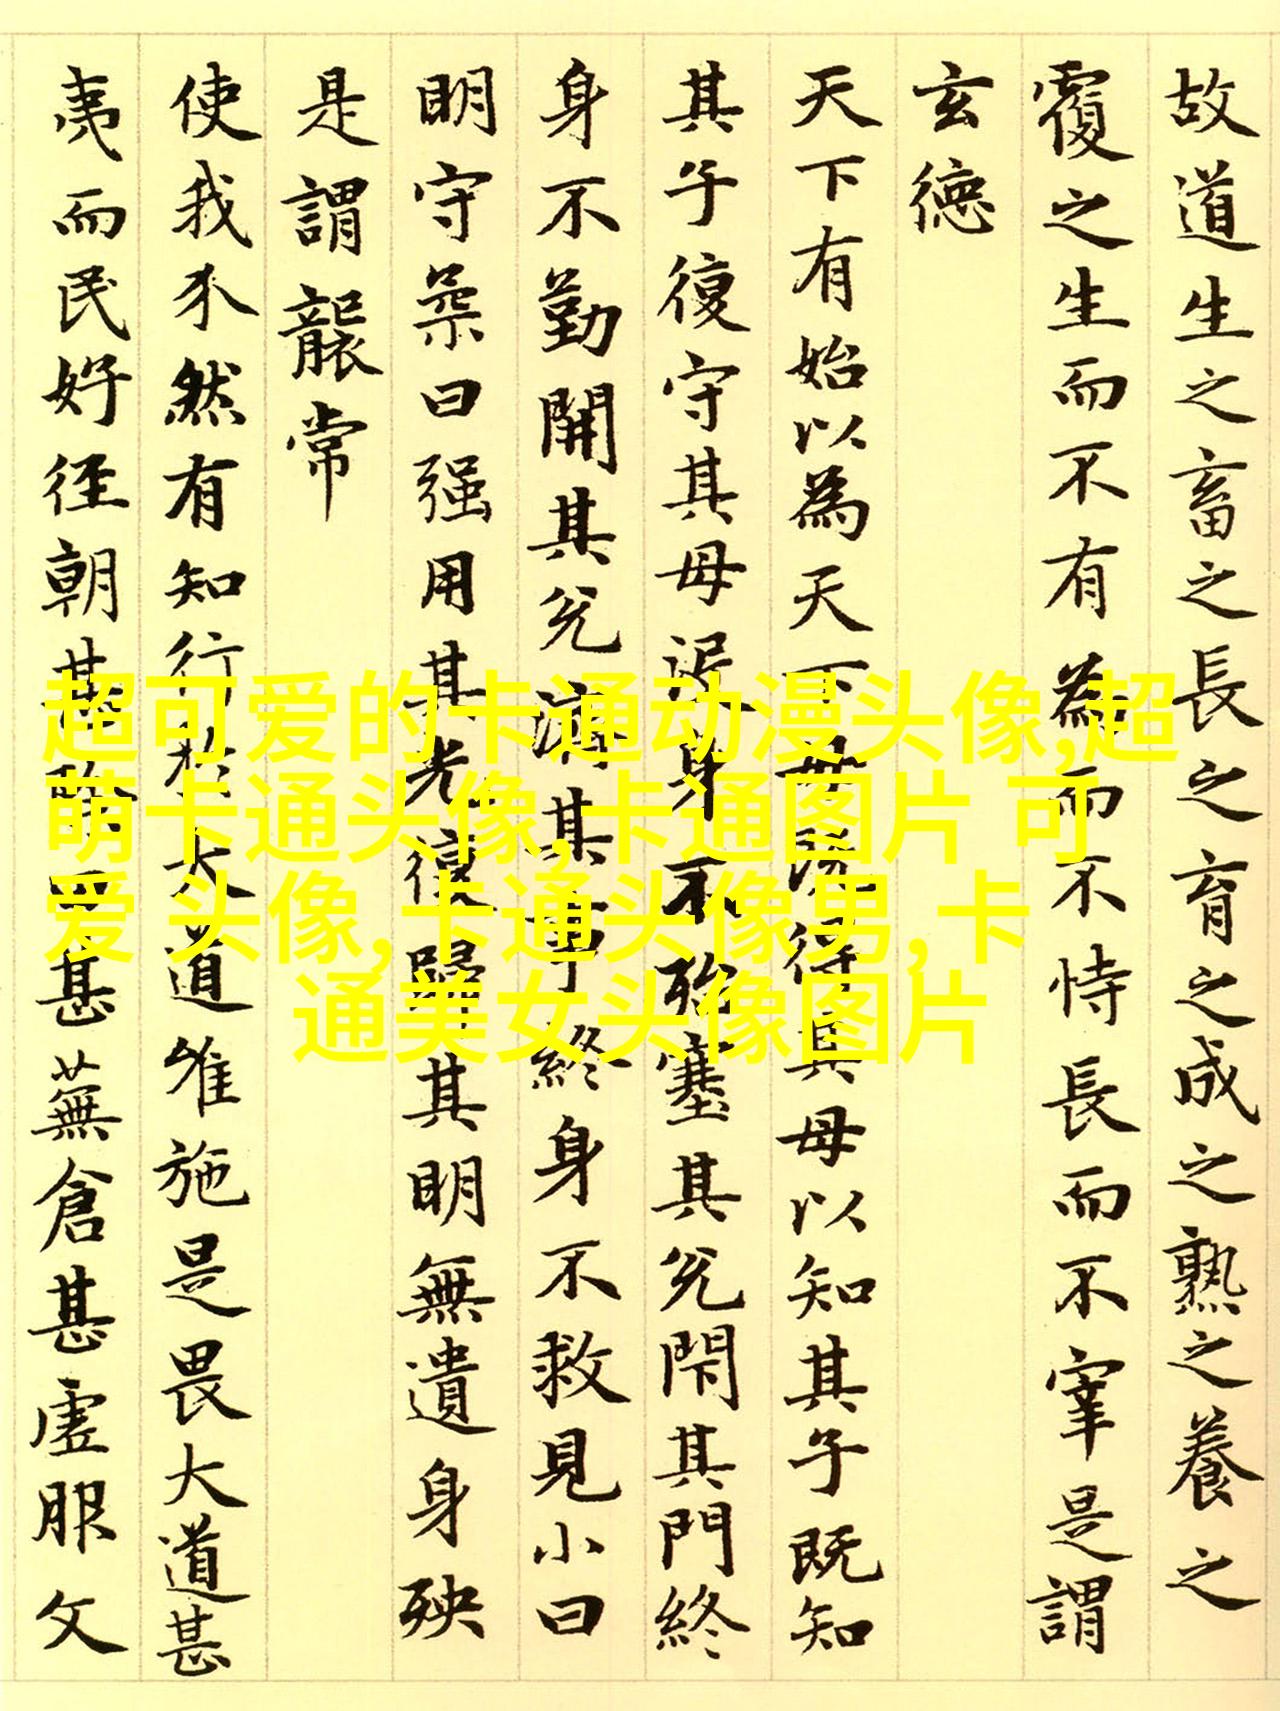 故道生之畜之長之育之成之熟之養之
覆之生而不有為而不恃長而不宰是謂
玄德
天下有始以為天下母既得其母以知其子既知
其子復守其母没身不殆塞其兌閇其門終
身不勤開其兌濟其事終身不救見小曰
明守柔曰强用其光復歸其明無遺身殃
是謂襲常
使我介然有知行於大道唯施是畏大道甚
夷而民好徑朝甚除田甚蕪倉甚虛服文
超可爱的卡通动漫头像,超
萌卡通头像,卡通图片 可
爱 头像,卡通头像男,卡
通美女头像图片